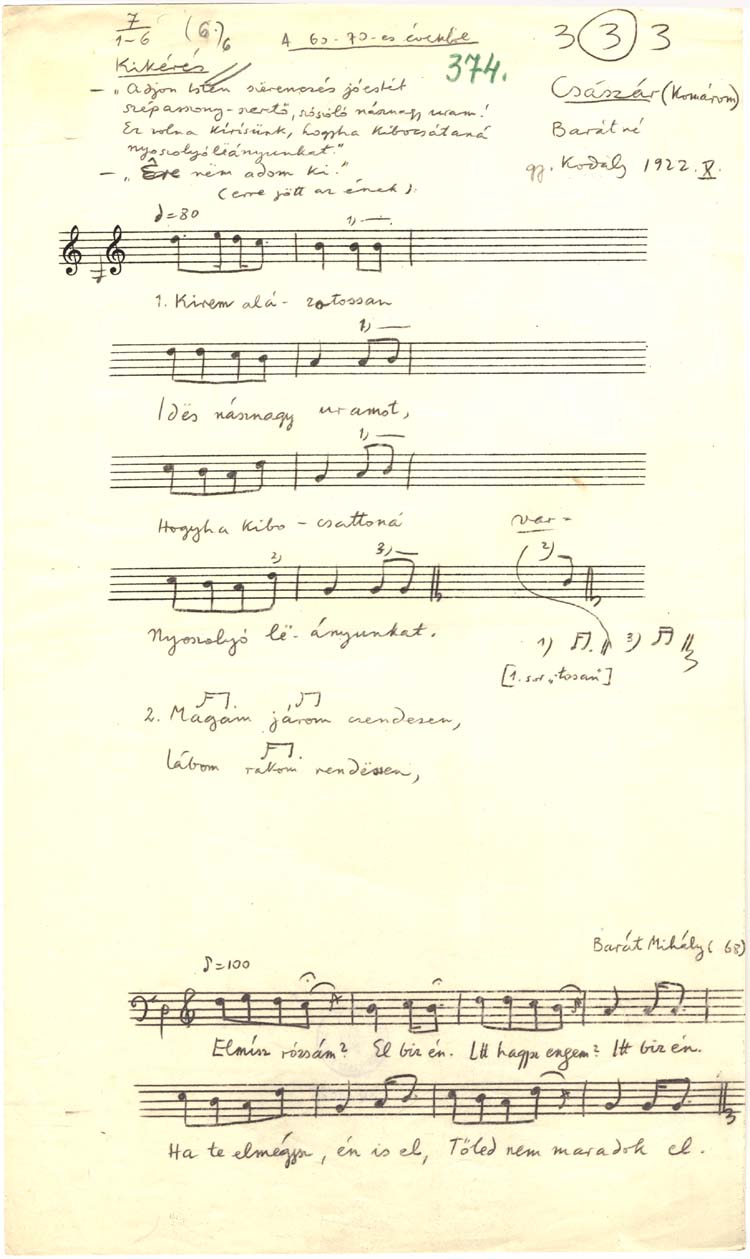 7
1-6
(6.)6
A 60-70-es években
3 (3) 3
374.
Kikérés
Császár (Komárom)
Barátné
gy. Kodály 1922. X.
– „Adjon Isten szerencsés jóestét
szépasszony-szertő, szószóló násznagy uram!
Ez volna kírisünk, hogyha kibocsátaná
nyoszolyóleányunkat."
– „Êre nëm adom ki."
(erre jött az ének).
♩=80
1) —
1. Kirem alá-zatossan
1) —
Idës násznagy uramot,
1) —
Hogyha kibo-csattoná
var-
2)
3) —
2)
Nyoszolyó lë-ányunkat.
1)
3)
[1. sor „tosan"]
2. Magam járom csendesen,
lábom rakom rendëssen,
Barát Mihály (68)
♪=100
Elmísz rózsám? El biz én. Itt hagysz engem? Itt biz én.
Ha te elmégysz, én is el, Tőled nem maradok el.